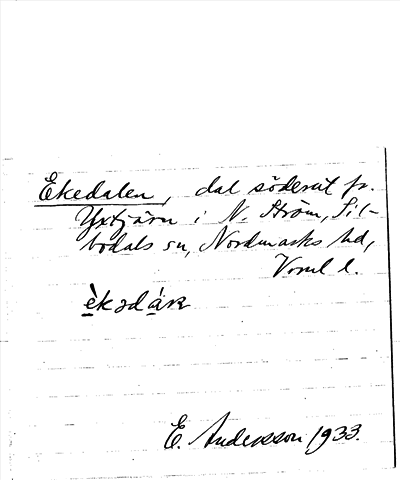 Ekedalen, dal söderut fr.
Yxtjärn i N. Ström, Sil-
bodals sn, Nordmarks hd,
Vrml l.
E. Andersson 1933.